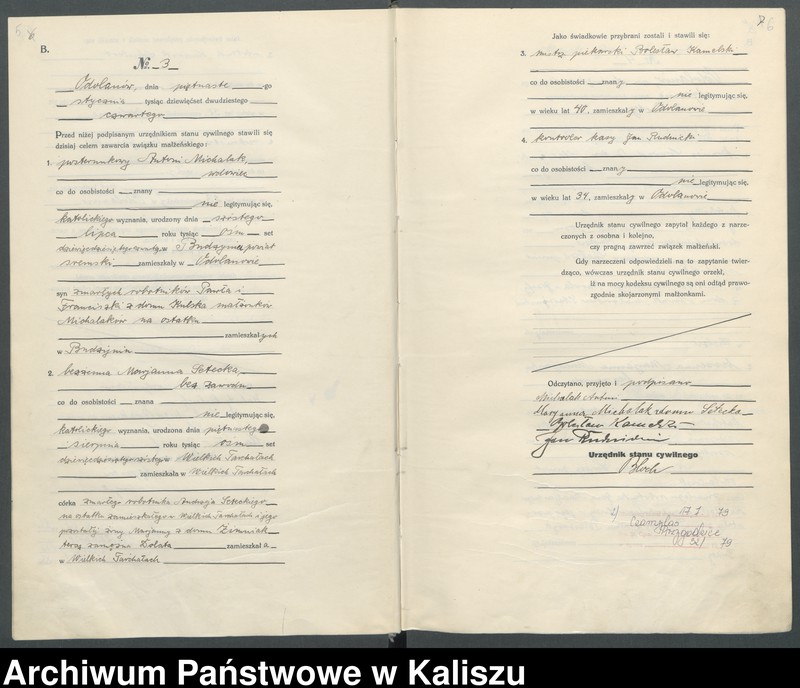 B.
№ 3
Odolanów, dnia piętnaste go
stycznia tysiąc dziewięćset dwudziestego
czwartego
Przed niżej podpisanym urzędnikiem stanu cywilnego stawili się
dzisiaj celem zawarcia związku małżeńskiego:
1. posterunkowy Antoni Michalak,
wdowiec
co do osobistości znany
nie legitymując się,
katolickiego wyznania, urodzony dnia szóstego
lipca roku tysiąc osm set
w Budzyniu, powiat
śremski zamieszkały w Odolanowie
syn zmarłych robotników Pawła i
Franciszki z domu Kulska małżonków
Michalaków na ostatku
zamieszkałych
w Budzyniu
2. bezżenna Maryanna Setecka,
bez zawodu
co do osobistości znana
nie legitymując się,
katolickiego wyznania, urodzona dnia piętnastego
sierpnia roku tysiąc osm set
w Wielkich Tarchałach
zamieszkała w Wielkich Tarchałach
córka zmarłego robotnika Andrzeja Seteckiego
na ostatku zamieszkałego w Wielkich Tarchałach i jego
pozostałej żony Maryanny z domu Zimniak
teraz zamężna Kolata zamieszkała
w Wielkich Tarchałach
Jako świadkowie przybrani zostali i stawili się:
3. mistrz piekarski Bolesław Kamelski
co do osobistości znany
nie legitymując się,
w wieku lat 40, zamieszkały w Odolanowie
4. kontroler kasy Jan Rudnicki
co do osobistości znany
nie legitymując się,
w wieku lat 34, zamieszkały w Odolanowie
Urzędnik stanu cywilnego zapytał każdego z narze-
czonych z osobna i kolejno,
czy pragną zawrzeć związek małżeński.
Gdy narzeczeni odpowiedzieli na to zapytanie twier-
dząco, wówczas urzędnik stanu cywilnego orzekł,
iż na mocy kodeksu cywilnego są oni odtąd prawo-
zgodnie skojarzonymi małżonkami.
Odczytano, przyjęto i podpisano
Michalak Antoni
Maryanna Michalak z domu Setecka
Bolesław Kamelski
Jan Rudnicki
Urzędnik stanu cywilnego
Bloch
Archiwum Państwowe w Kaliszu